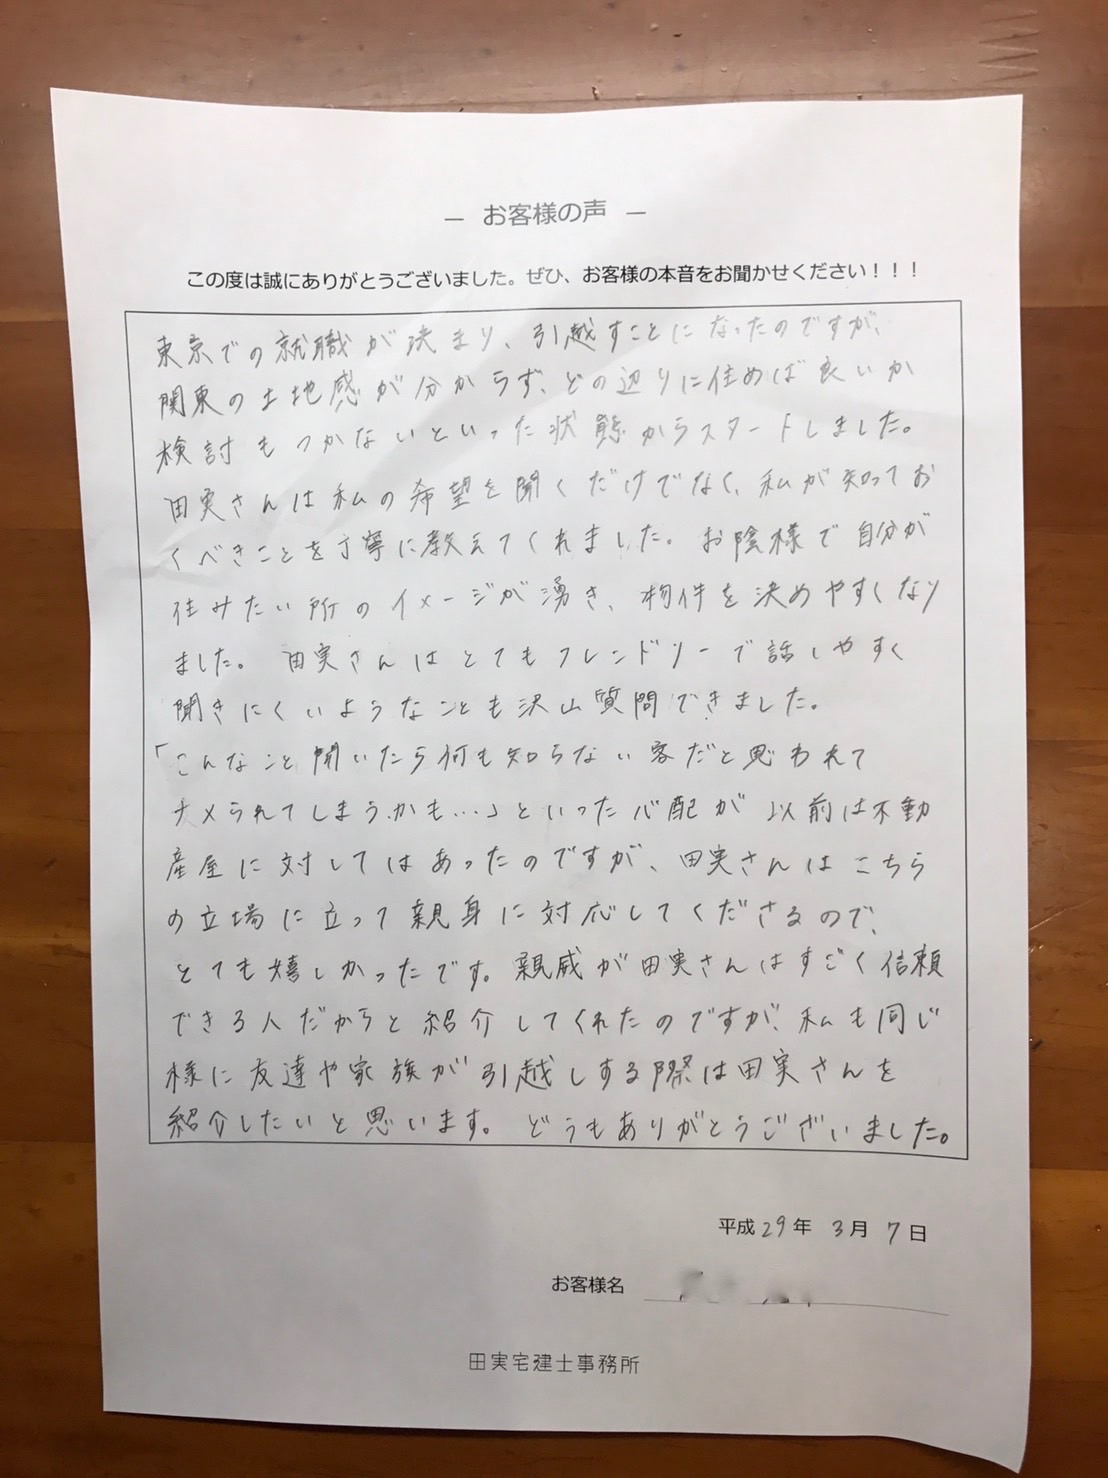 ― お客様の声 ―
この度は誠にありがとうございました。ぜひ、お客様の本音をお聞かせください！！！
東京での就職が決まり、引越すことになったのですが、
関東の土地感が分からず、どの辺りに住めば良いか
検討もつかないといった状態からスタートしました。
田実さんは私の希望を聞くだけでなく、私が知ってお
くべきことを丁寧に教えてくれました。お陰様で自分が
住みたい所のイメージが湧き、物件を決めやすくなり
ました。田実さんはとてもフレンドリーで話しやすく
聞きにくいようなことも沢山質問できました。
「こんなこと聞いたら何も知らない客だと思われて
ナメられてしまうかも…」といった心配が以前は不動
産屋に対してはあったのですが、田実さんはこちら
の立場に立って親身に対応してくださるので、
とても嬉しかったです。親戚が田実さんはすごく信頼
できる人だからと紹介してくれたのですが、私も同じ
様に友達や家族が引越しする際は田実さんを
紹介したいと思います。どうもありがとうございました。
平成29年 3月 7日
お客様名
田実宅建士事務所